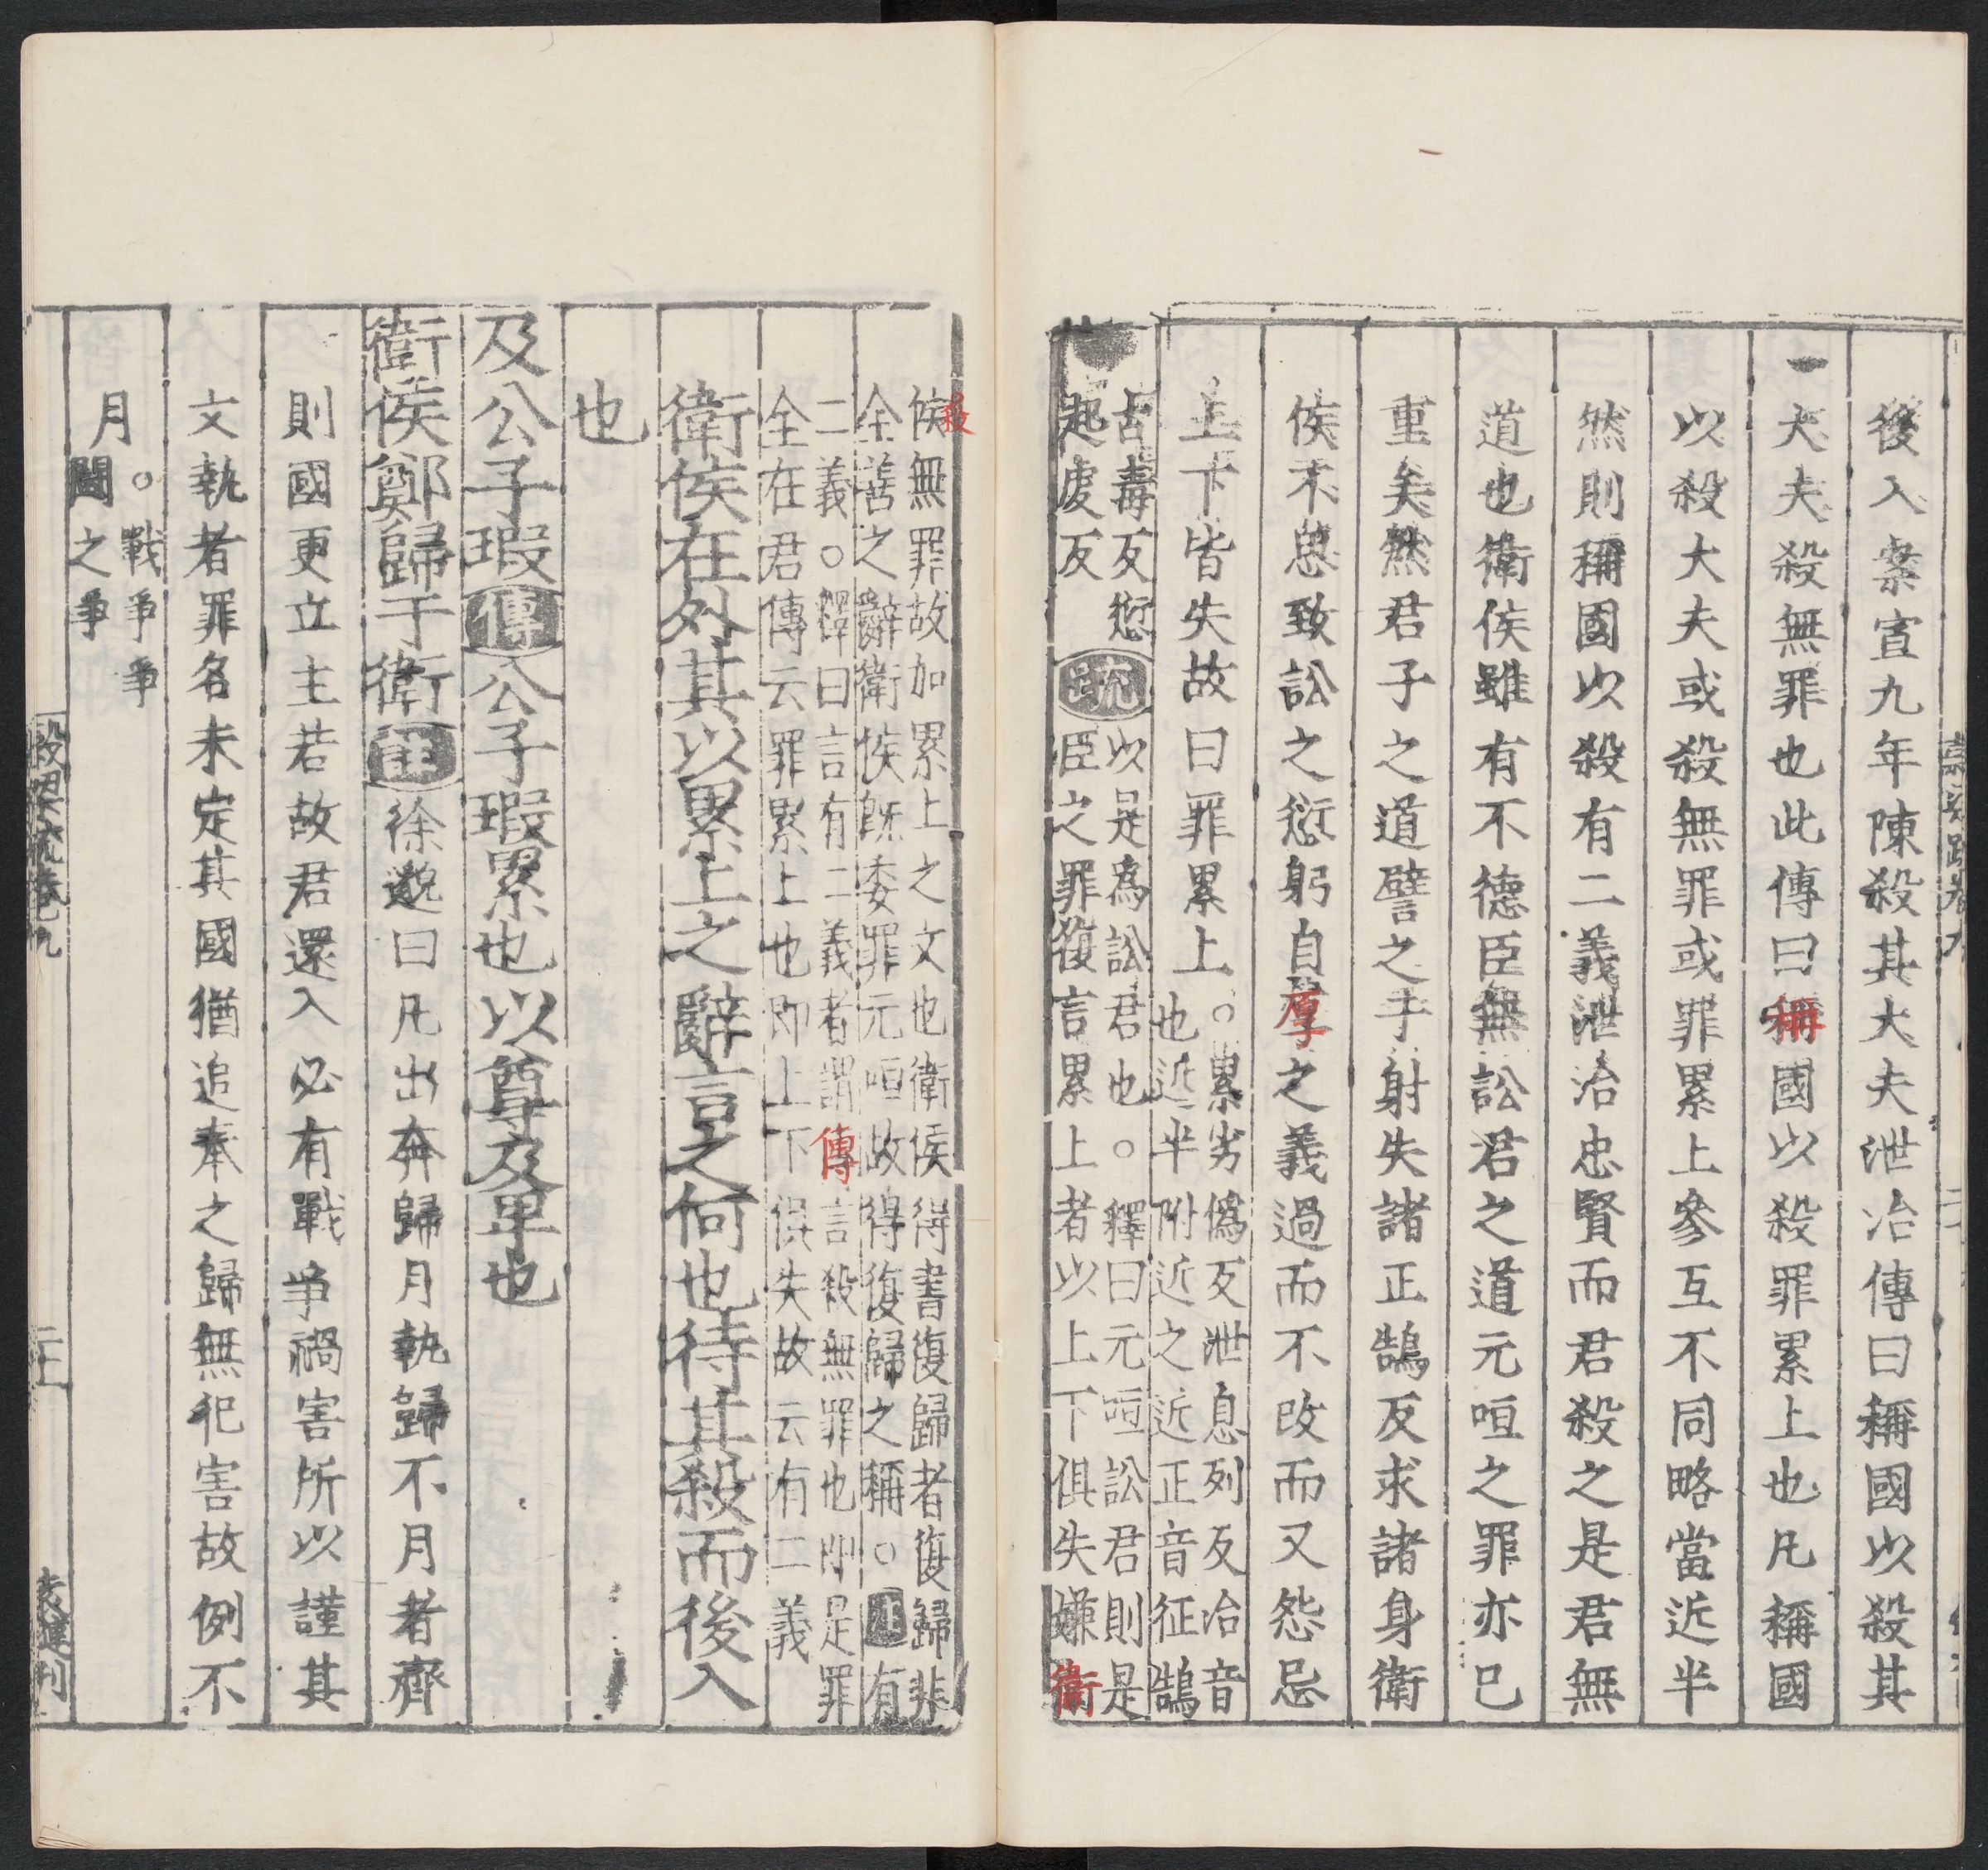 後入案宣九年陳殺其大夫泄冶傳曰稱國以殺其
大夫殺無罪也此傳曰稱國以殺罪累上也凡稱國
以殺大夫或殺無罪或罪累上參互不同略當近半
然則稱國以殺有二義泄冶忠賢而君殺之是君無
道也衛侯雖有不德臣無訟君之道元咺之罪亦已
重矣然君子之道譬之于射失諸正鵠反求諸身衛
侯不思致訟之愆躬自厚之義過而不改而又怨忌
上下皆失故曰罪累上
○累劣僞反泄息列反冶音
也近半附近之近正音征鵠
古毒反愆
起虔反
疏
以是爲訟君也○釋曰元咺訟君則是
臣之罪復言累上者以上下俱失嫌衛
侯無罪故加累上之文也衛侯得書復歸者復歸非
全善之辭衛侯旣委罪元咺故得復歸之稱○注有
殺
二義○釋曰言有二義者謂傳言殺無罪也卽是罪
全在君傳云罪累上也即上下俱失故云有二義
衛侯在外其以累上之辭言之何也待其殺而後入
也
及公子瑕傳公子瑕累也以尊及卑也
衛侯鄭歸于衛注徐邈曰凡出奔歸月執歸不月者齊
則國更立主若故君還入必有戰争禍害所以謹其
文執者罪名未定其國猶追奉之歸無犯害故例不
月
○戰争争
鬪之争
穀梁疏卷九